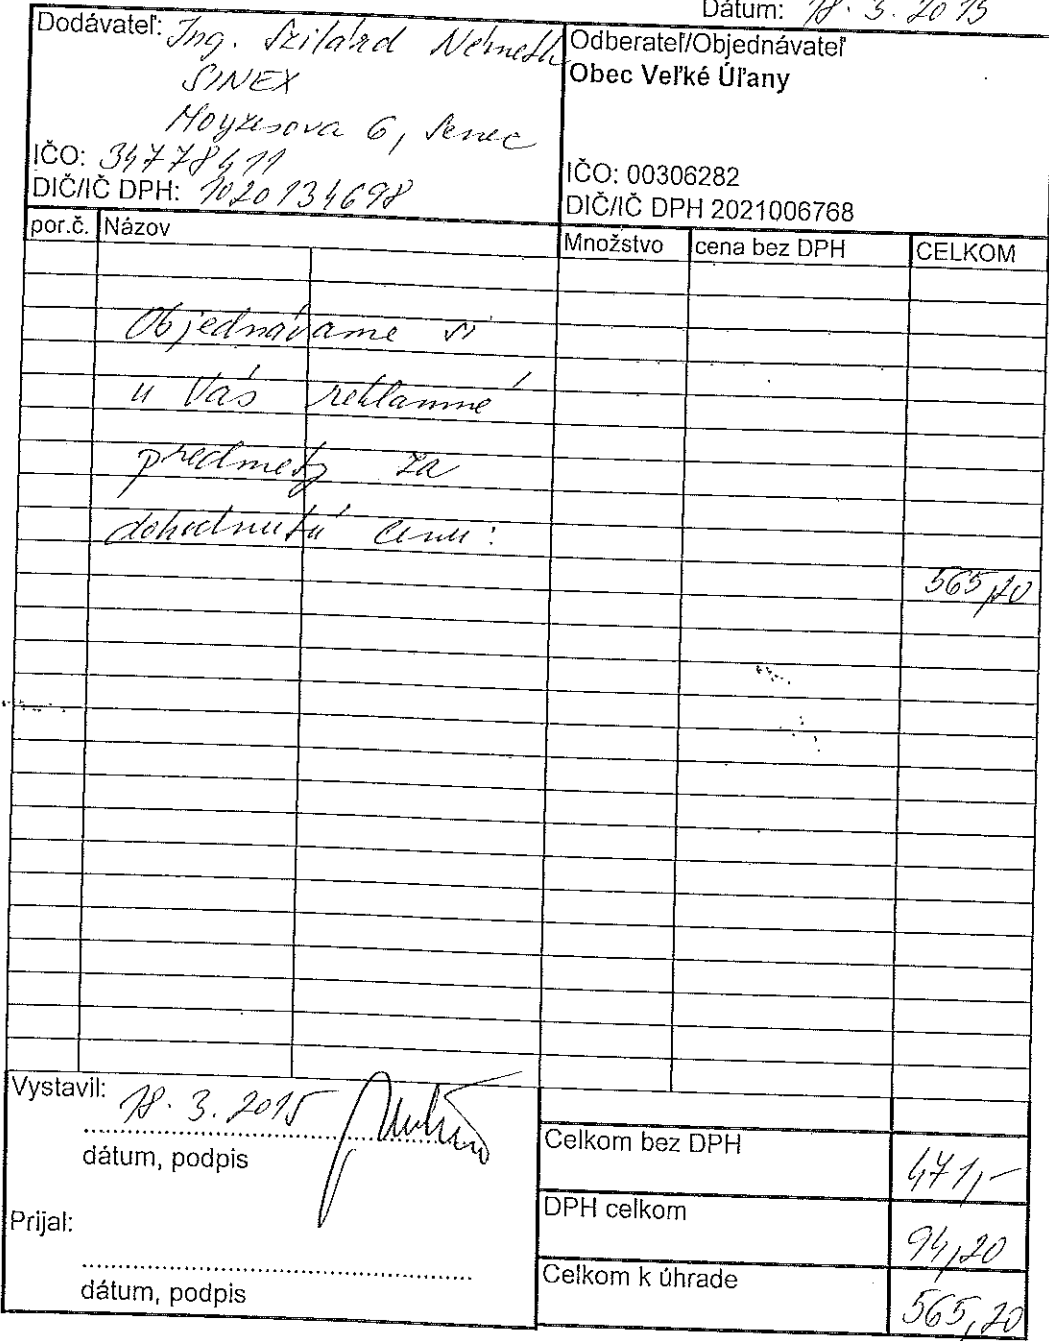 Dátum: 18. 3. 2015
Dodávateľ: Ing. Szilárd Németh
SINEX
Moyzesova 6, Senec
IČO: 34778411
DIČ/IČ DPH: 1020134698
Odberateľ/Objednávateľ
Obec Veľké Úľany
IČO: 00306282
DIČ/IČ DPH 2021006768
por.č. Názov Množstvo cena bez DPH CELKOM
Objednávame si
u Vás reklamné
predmety za
dohodnutú cenu:
565,20
Vystavil: 18. 3. 2015
dátum, podpis
Prijal:
dátum, podpis
Celkom bez DPH 471,-
DPH celkom 94,20
Celkom k úhrade 565,20